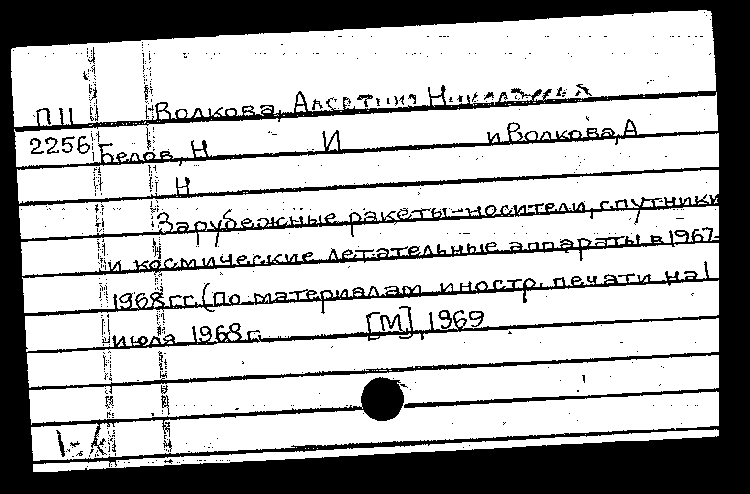 ПП Волкова, Алевтина Николаевна
2256 Белов, Н И и Волкова, А
Н
Зарубежные ракеты-носители, спутники
и космические летательные аппараты в 1967-
1968 гг. (По материалам иностр. печати на 1
июля 1968 г. [М], 1969